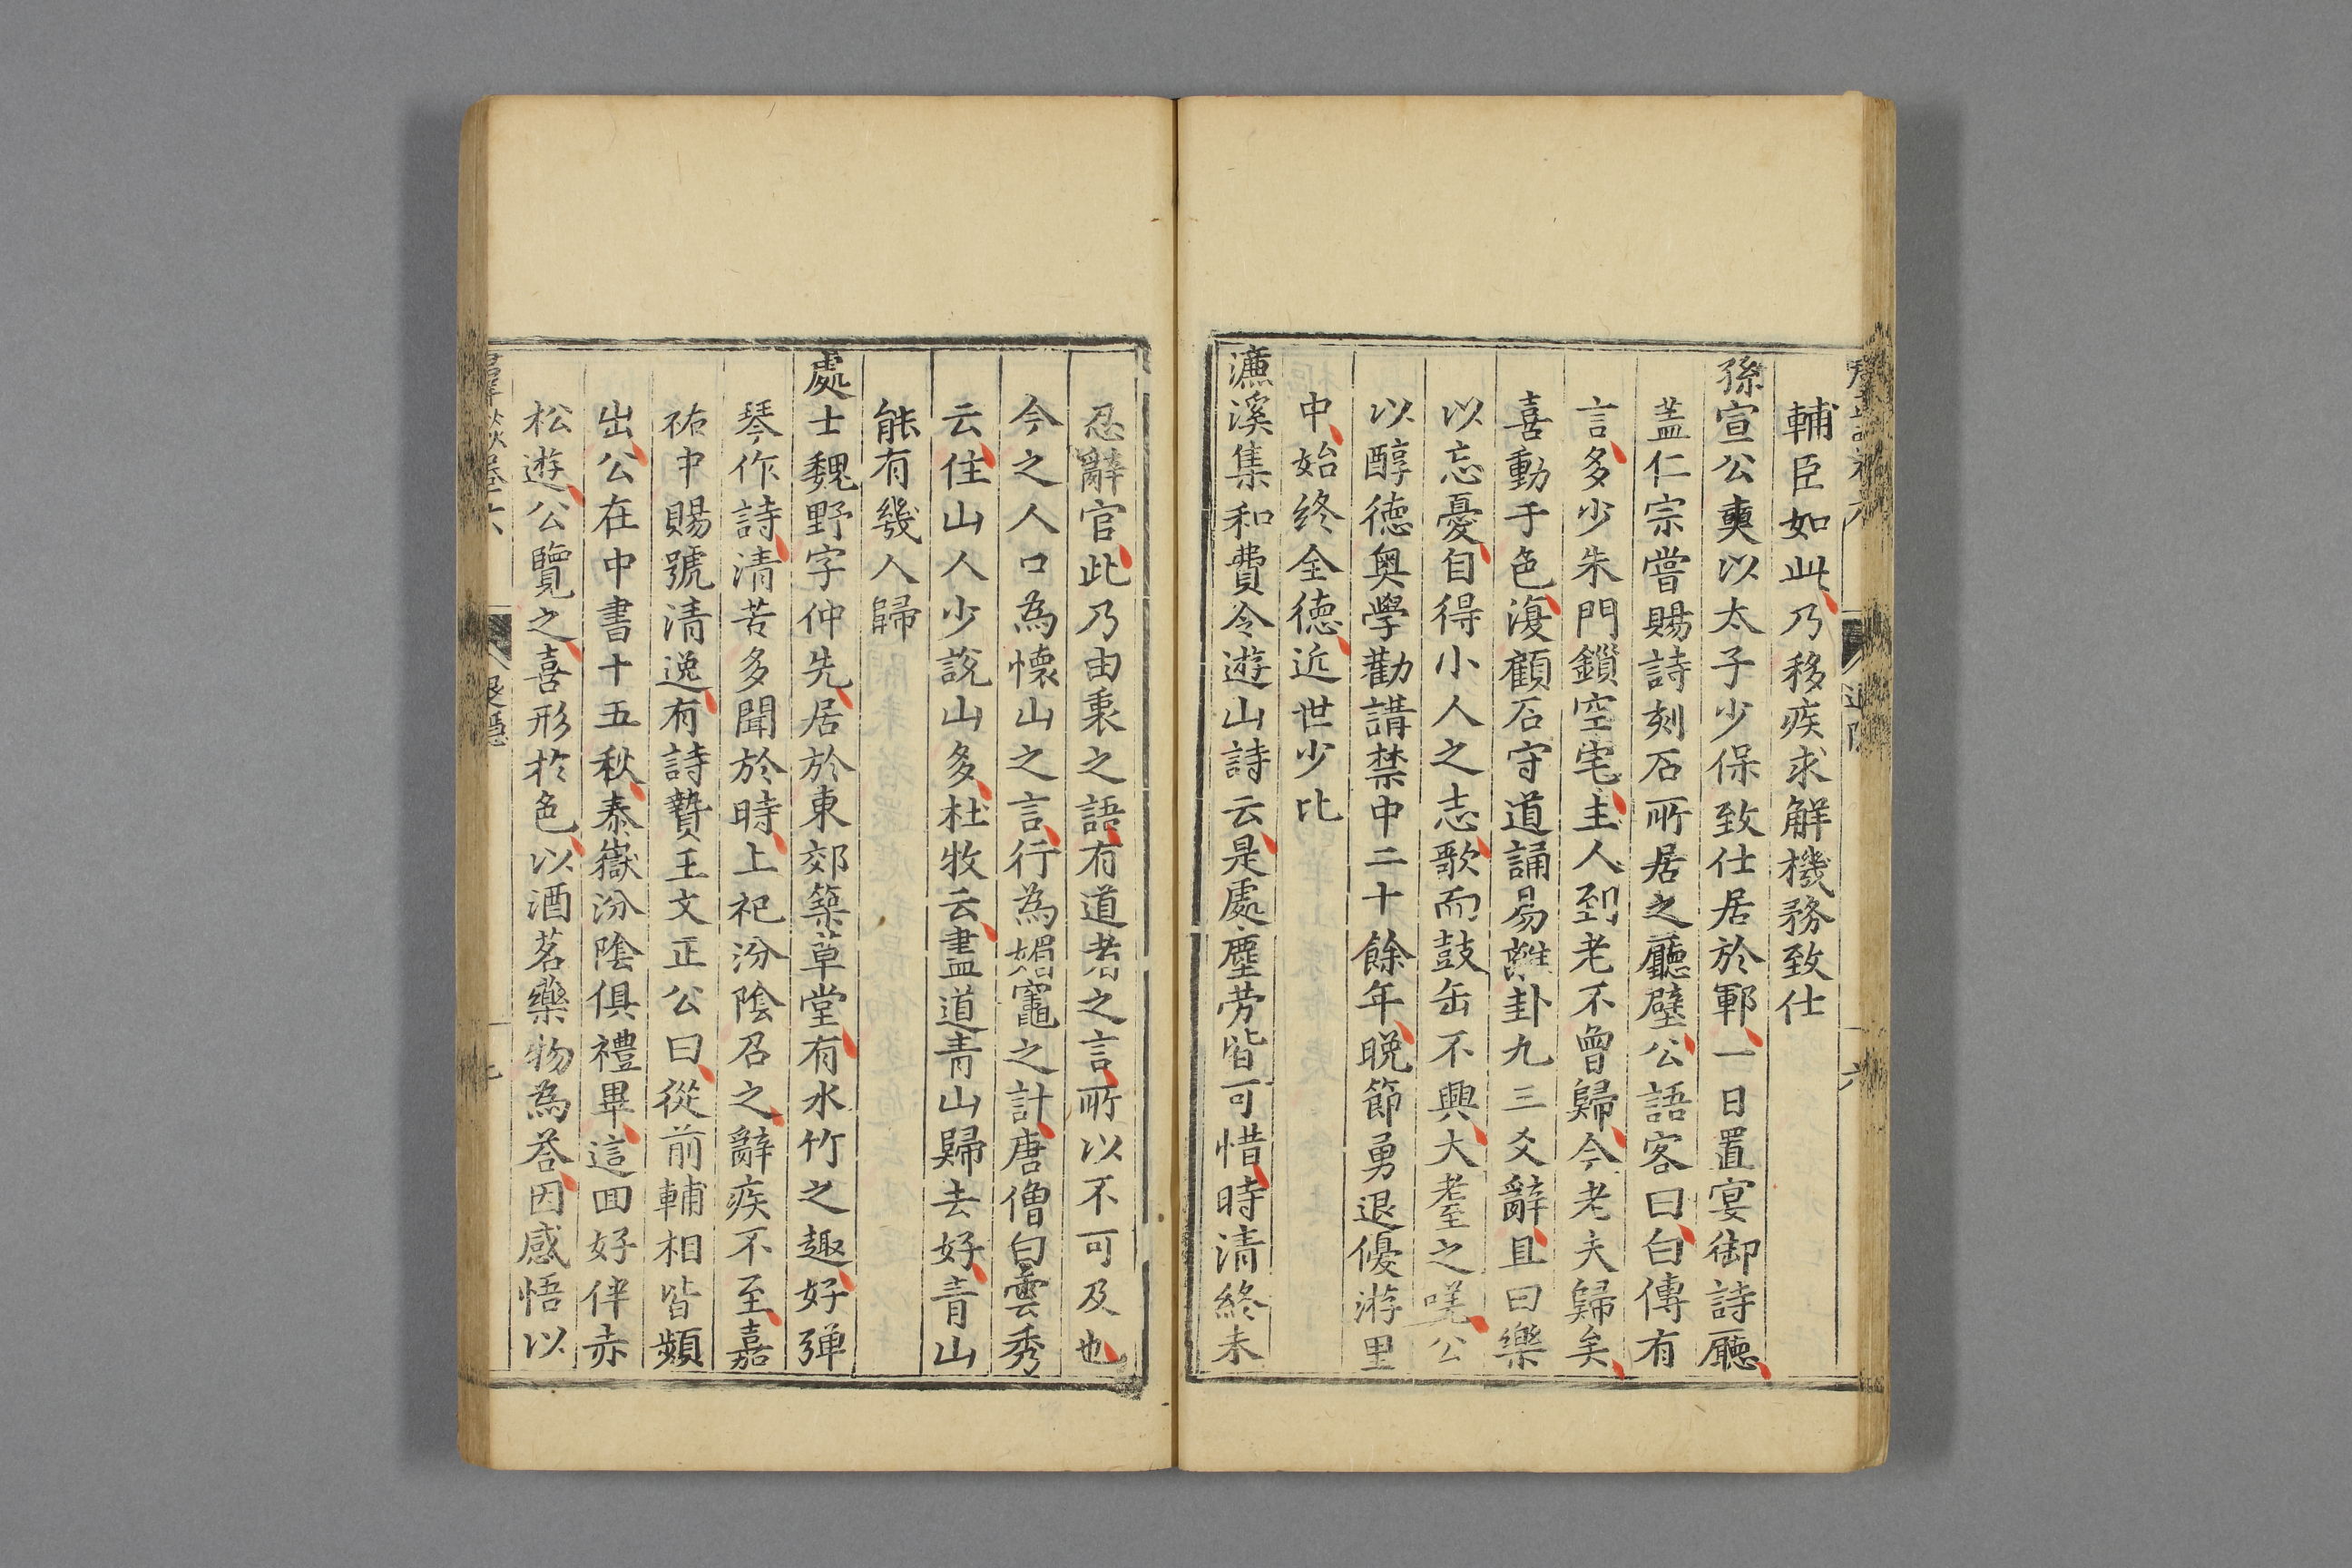 輔臣如此乃移疾求解機務致仕
孫宣公奭以太子少保致仕居於鄆一日置宴御詩廳
盖仁宗嘗賜詩刻石所居之廳壁公語客曰白傅有
言多少朱門鎖空宅主人到老不曾歸今老夫歸矣
喜動于色復顧石守道誦易離卦九三爻辭且曰樂
以忘憂自得小人之志歌而鼓缶不興大耋之嘆公
以醇德奧學勸講禁中二十餘年晚節勇退優游里
中始終全德近世少比
濂溪集和費令遊山詩云是處塵劳皆可惜時清終未
忍辭官此乃由衷之語有道者之言所以不可及也
今之人口為懷山之言行為媚竈之計唐僧曇秀
云住山人少說山多杜牧云盡道青山歸去好青山
能有幾人歸
處士魏野字仲先居於東郊築草堂有水竹之趣好弹
琴作詩清苦多聞於時上祀汾陰召之辭疾不至嘉
祐中賜號清逸有詩贄王文正公曰從前輔相皆頻
出公在中書十五秋泰嶽汾陰俱禮畢這回好伴赤
松遊公覽之喜形於色以酒茗藥物為荅因感悟以